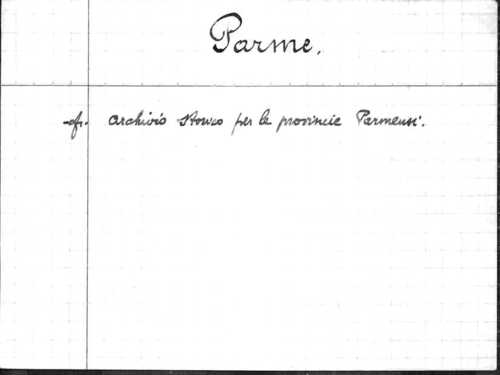 Parme.
cfr. Archivio storico per le provincie Parmensi.